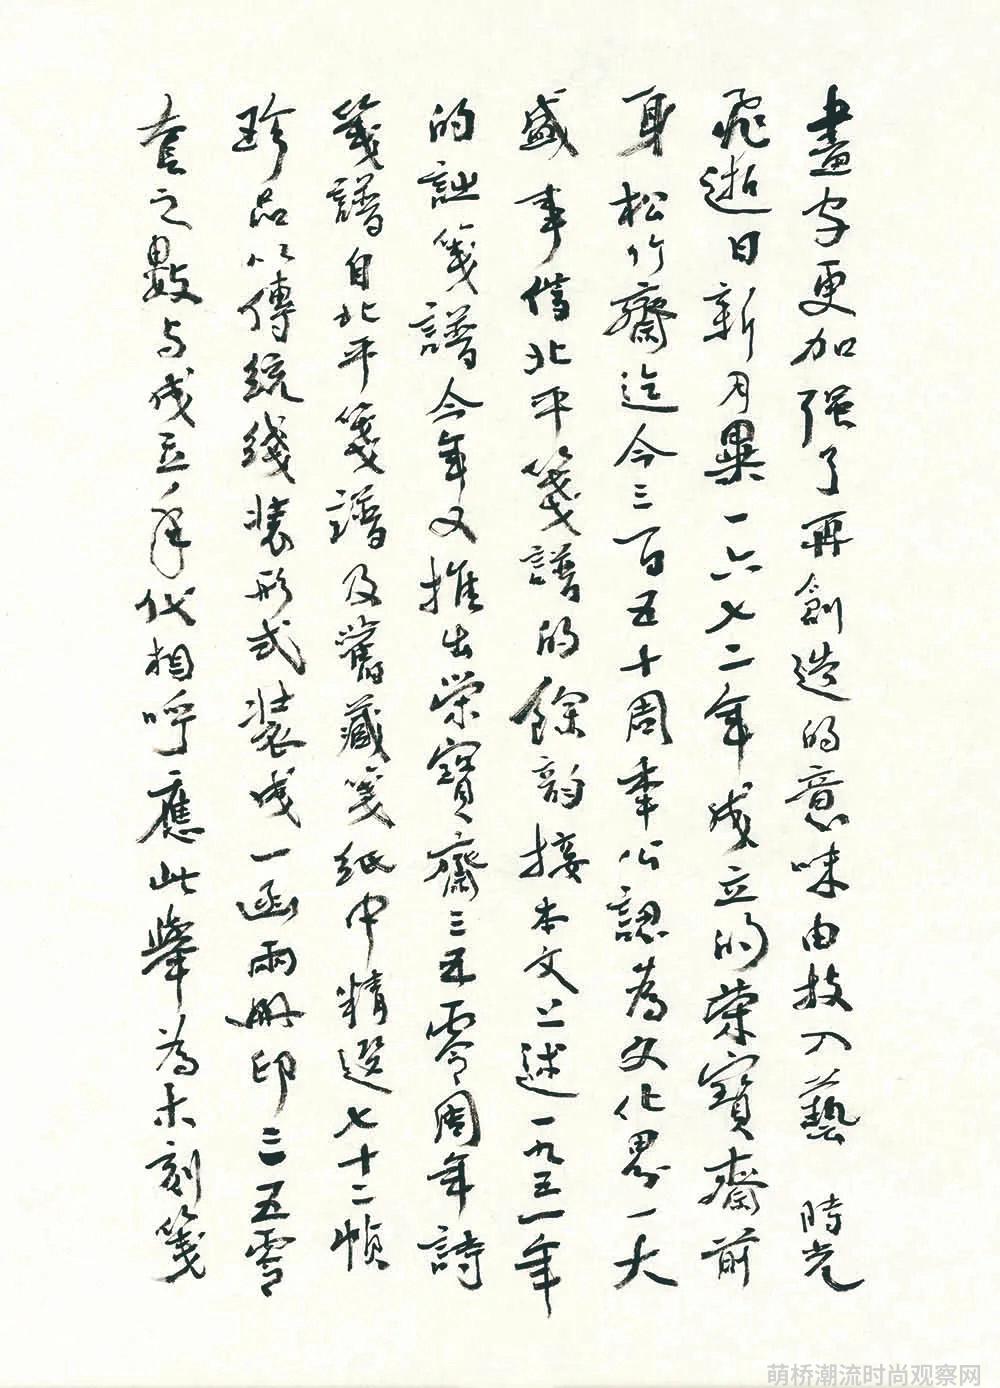 畫字更加强了再創造的意味由技入藝 時光
飛逝日新月異一六七二年成立的榮寶齋前
身松竹齋迄今三百五十周年公認為文化界一大
盛事借北平箋譜的餘韵接本文上述一九五一年
的詩箋譜今年又推出榮寶齋三五零周年詩
箋譜自北平箋譜及舊藏箋紙中精選七十二幀
珍品以傳統綫裝形式裝成一函兩册印三五零
套之數与成立年代相呼應此舉為木刻箋
萌桥潮流时尚观察网